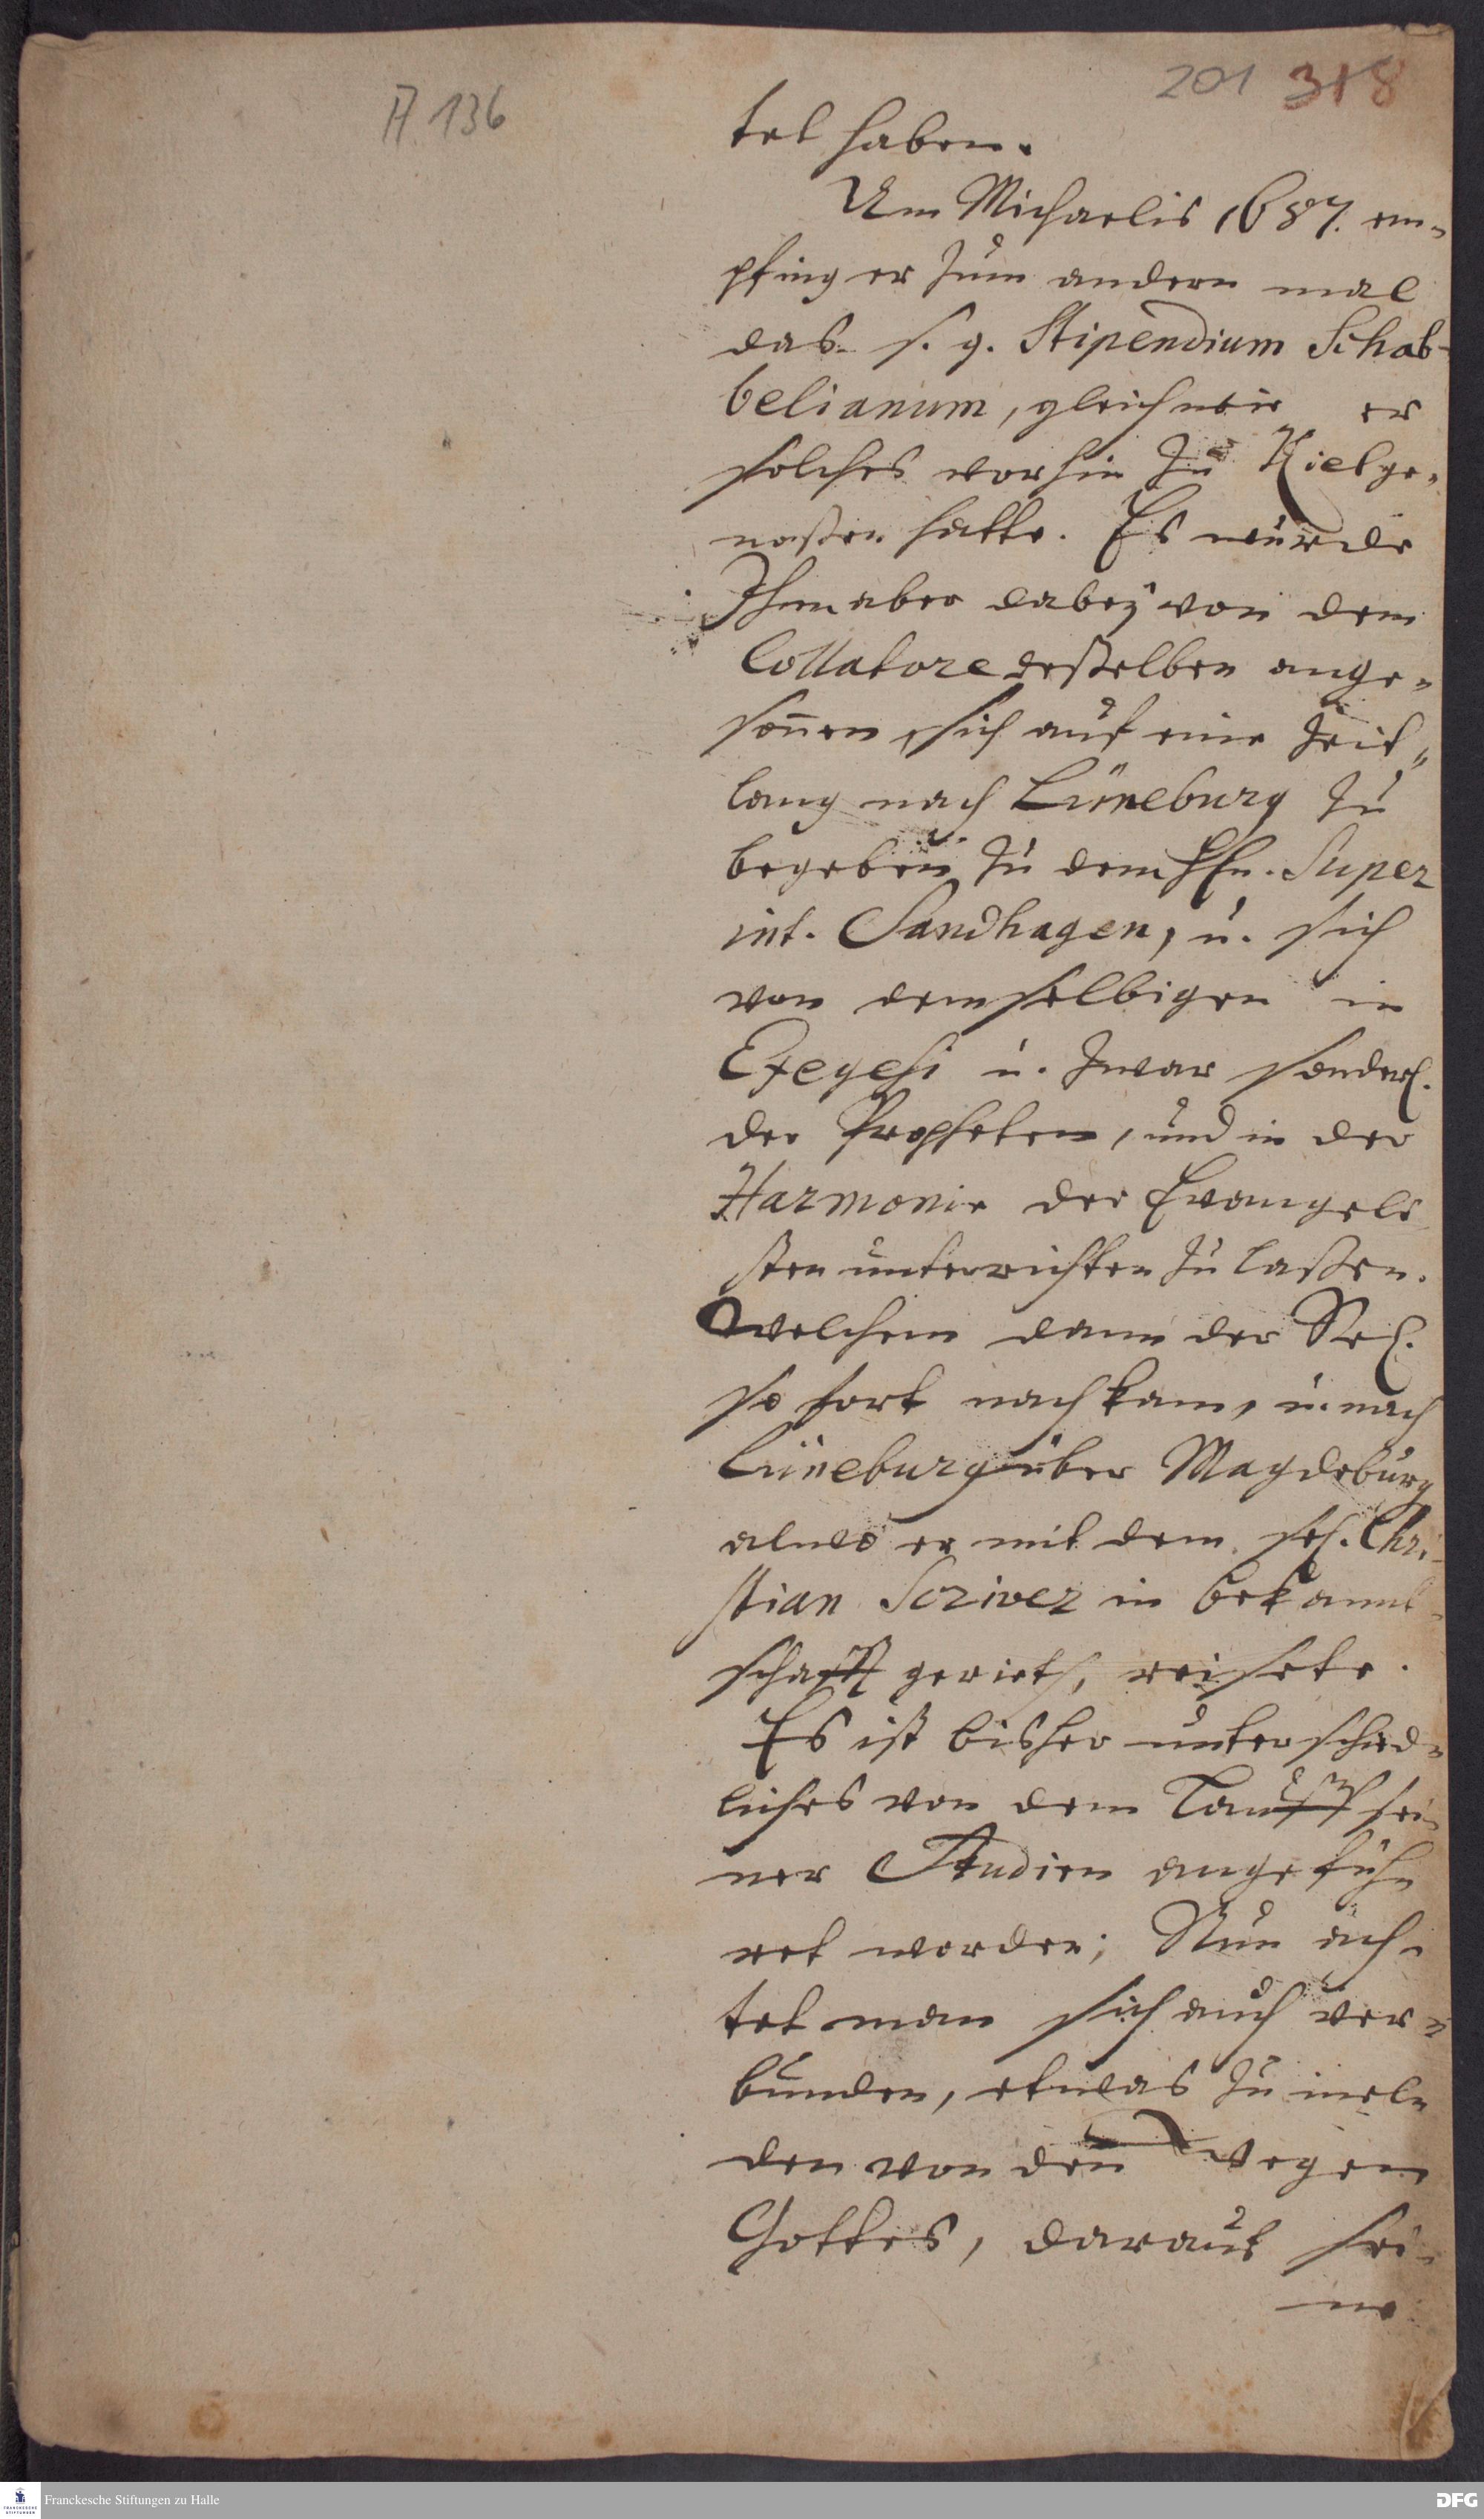 A 136
201 318
tet haben.
Um Michaelis 1687. em-
pfing er zum andern mal
das s. g. Stipendium Schab-
belianum, gleichwie er
solches vorhin zu Kiel ge-
noßen hatte. Es wurde
Ihm aber dabey von dem
Collatore deßelben ange-
soñen, sich auf eine Zeit-
lang nach Lüneburg zu
begeben zu dem Hn. Super
int. Sandhagen, u. sich
von demselbigen in
Exegesi u. zwar sonderl.
der Propheten, und in der
Harmonie der Evangeli
sten unterrichten zu laßen.
Welchem dann der Sel.
so fort nachkam, u. nach
Lüneburg über Magdeburg
alwo er mit dem sel. Chri-
stian Scriver in bekannt-
schafft gerieth, reisete.
Es ist bisher unterschied-
liches von dem Lauff sei-
ner Studien angefüh-
ret worden; Nun ach-
tet man sich auch ver-
bunden, etwas zu mel-
den von den Wegen
Gottes, darauf sei-
ne
Franckesche Stiftungen zu Halle
DFG